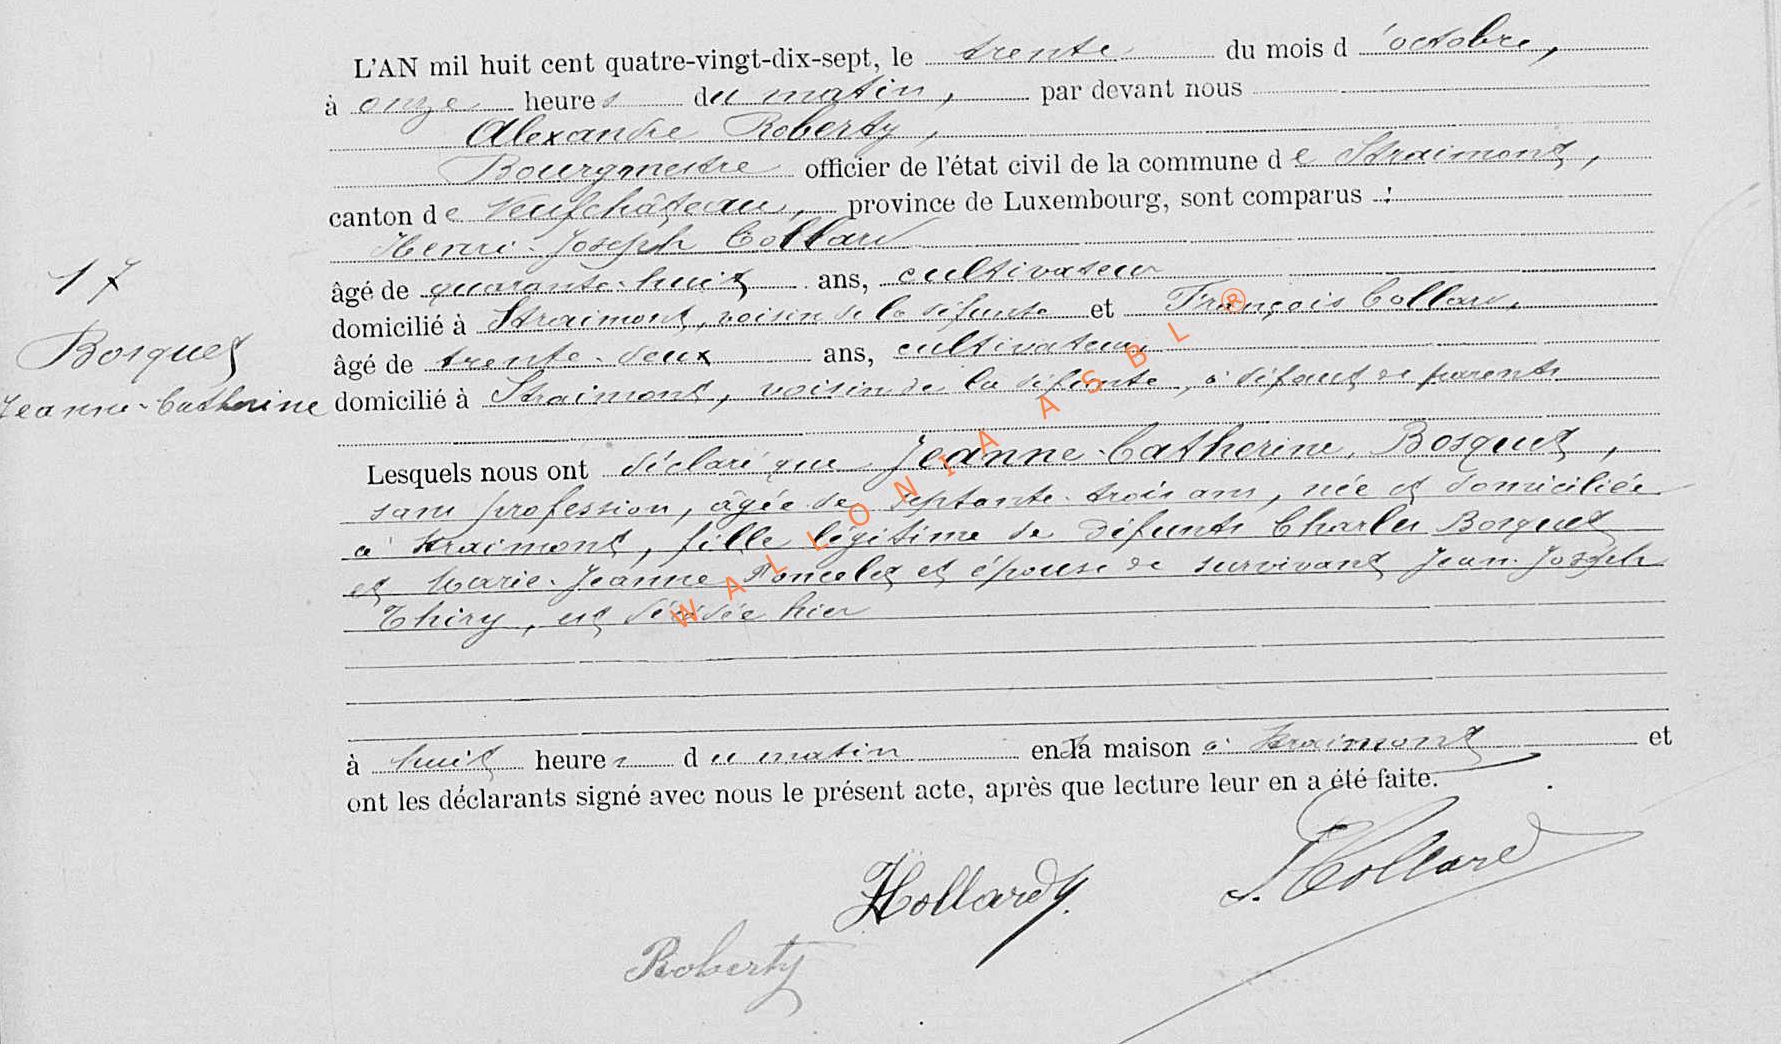 L'AN mil huit cent quatre-vingt-dix-sept, le trente du mois d'octobre,
à onze heures du matin, par devant nous
Alexandre Roberty,
Bourgmestre officier de l'état civil de la commune de Straimont,
canton de Neufchâteau, province de Luxembourg, sont comparus :
Henri-Joseph Collard
17
âgé de quarante-huit ans, cultivateur
domicilié à Straimont, voisin de la défunte et François Collard,
Bosquet
âgé de trente-deux ans, cultivateur
Jeanne-Catherine
domicilié à Straimont, voisin de la défunte, à défaut de parents
Lesquels nous ont déclaré que Jeanne-Catherine Bosquet,
sans profession, âgée de septante-trois ans, née et domiciliée
à Straimont, fille légitime de défunts Charles Bosquet
et Marie-Jeanne Poncelet et épouse de survivant Jean-Joseph
Thiry, est décédée hier
à huit heures du matin en la maison à Straimont et
ont les déclarants signé avec nous le présent acte, après que lecture leur en a été faite.
HCollard
F. Collard
Roberty
WALLONIA ASBL ®